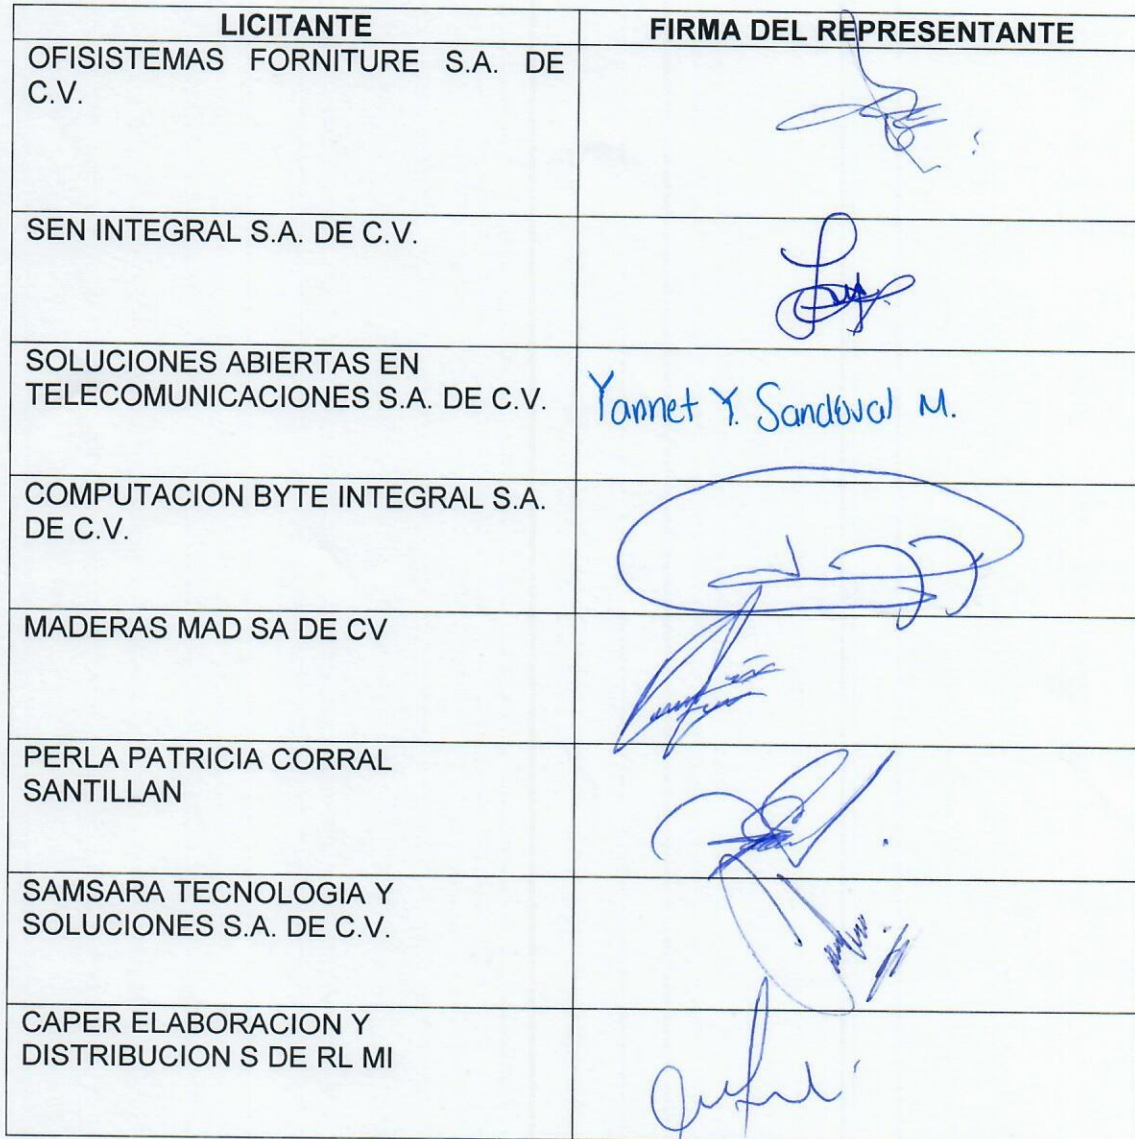 LICITANTE FIRMA DEL REPRESENTANTE
OFISISTEMAS FORNITURE S.A. DE
C.V.
SEN INTEGRAL S.A. DE C.V.
SOLUCIONES ABIERTAS EN
TELECOMUNICACIONES S.A. DE C.V.
Yannet Y. Sandoval M.
COMPUTACION BYTE INTEGRAL S.A.
DE C.V.
MADERAS MAD SA DE CV
PERLA PATRICIA CORRAL
SANTILLAN
SAMSARA TECNOLOGIA Y
SOLUCIONES S.A. DE C.V.
CAPER ELABORACION Y
DISTRIBUCION S DE RL MI